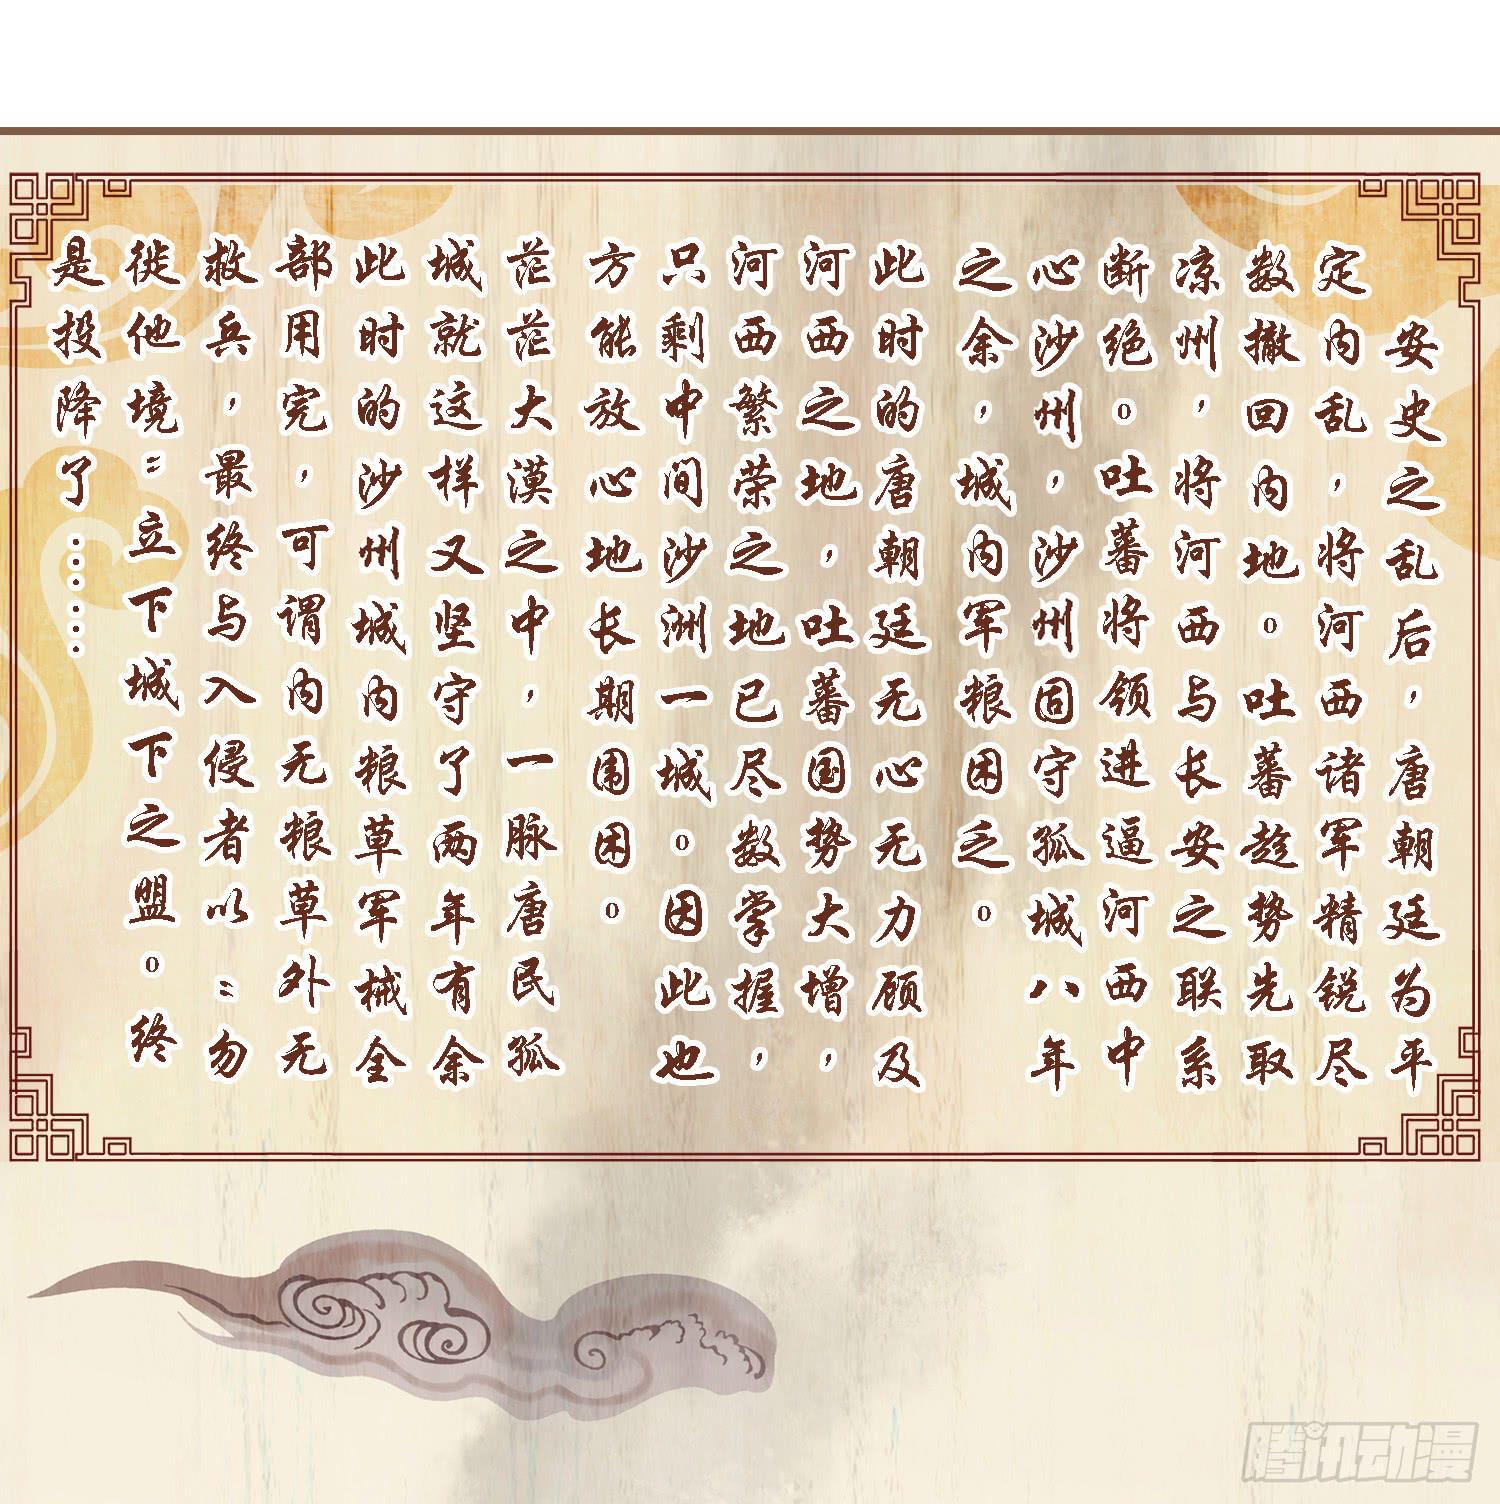 安史之乱后，唐朝廷为平
定内乱，将河西诸军精锐尽
数撤回内地。吐蕃趁势先取
凉州，将河西与长安之联系
断绝。吐蕃将领进逼河西中
心沙州，沙州固守孤城八年
之余，城内军粮困乏。
此时的唐朝廷无心无力顾及
河西之地，吐蕃国势大增，
河西繁荣之地已尽数掌握，
只剩中间沙洲一城。因此也
方能放心地长期围困。
茫茫大漠之中，一脉唐民孤
城就这样又坚守了两年有余
此时的沙州城内粮草军械全
部用完，可谓内无粮草外无
救兵，最终与入侵者以：勿
徙他境：立下城下之盟。终
是投降了……
腾讯动漫